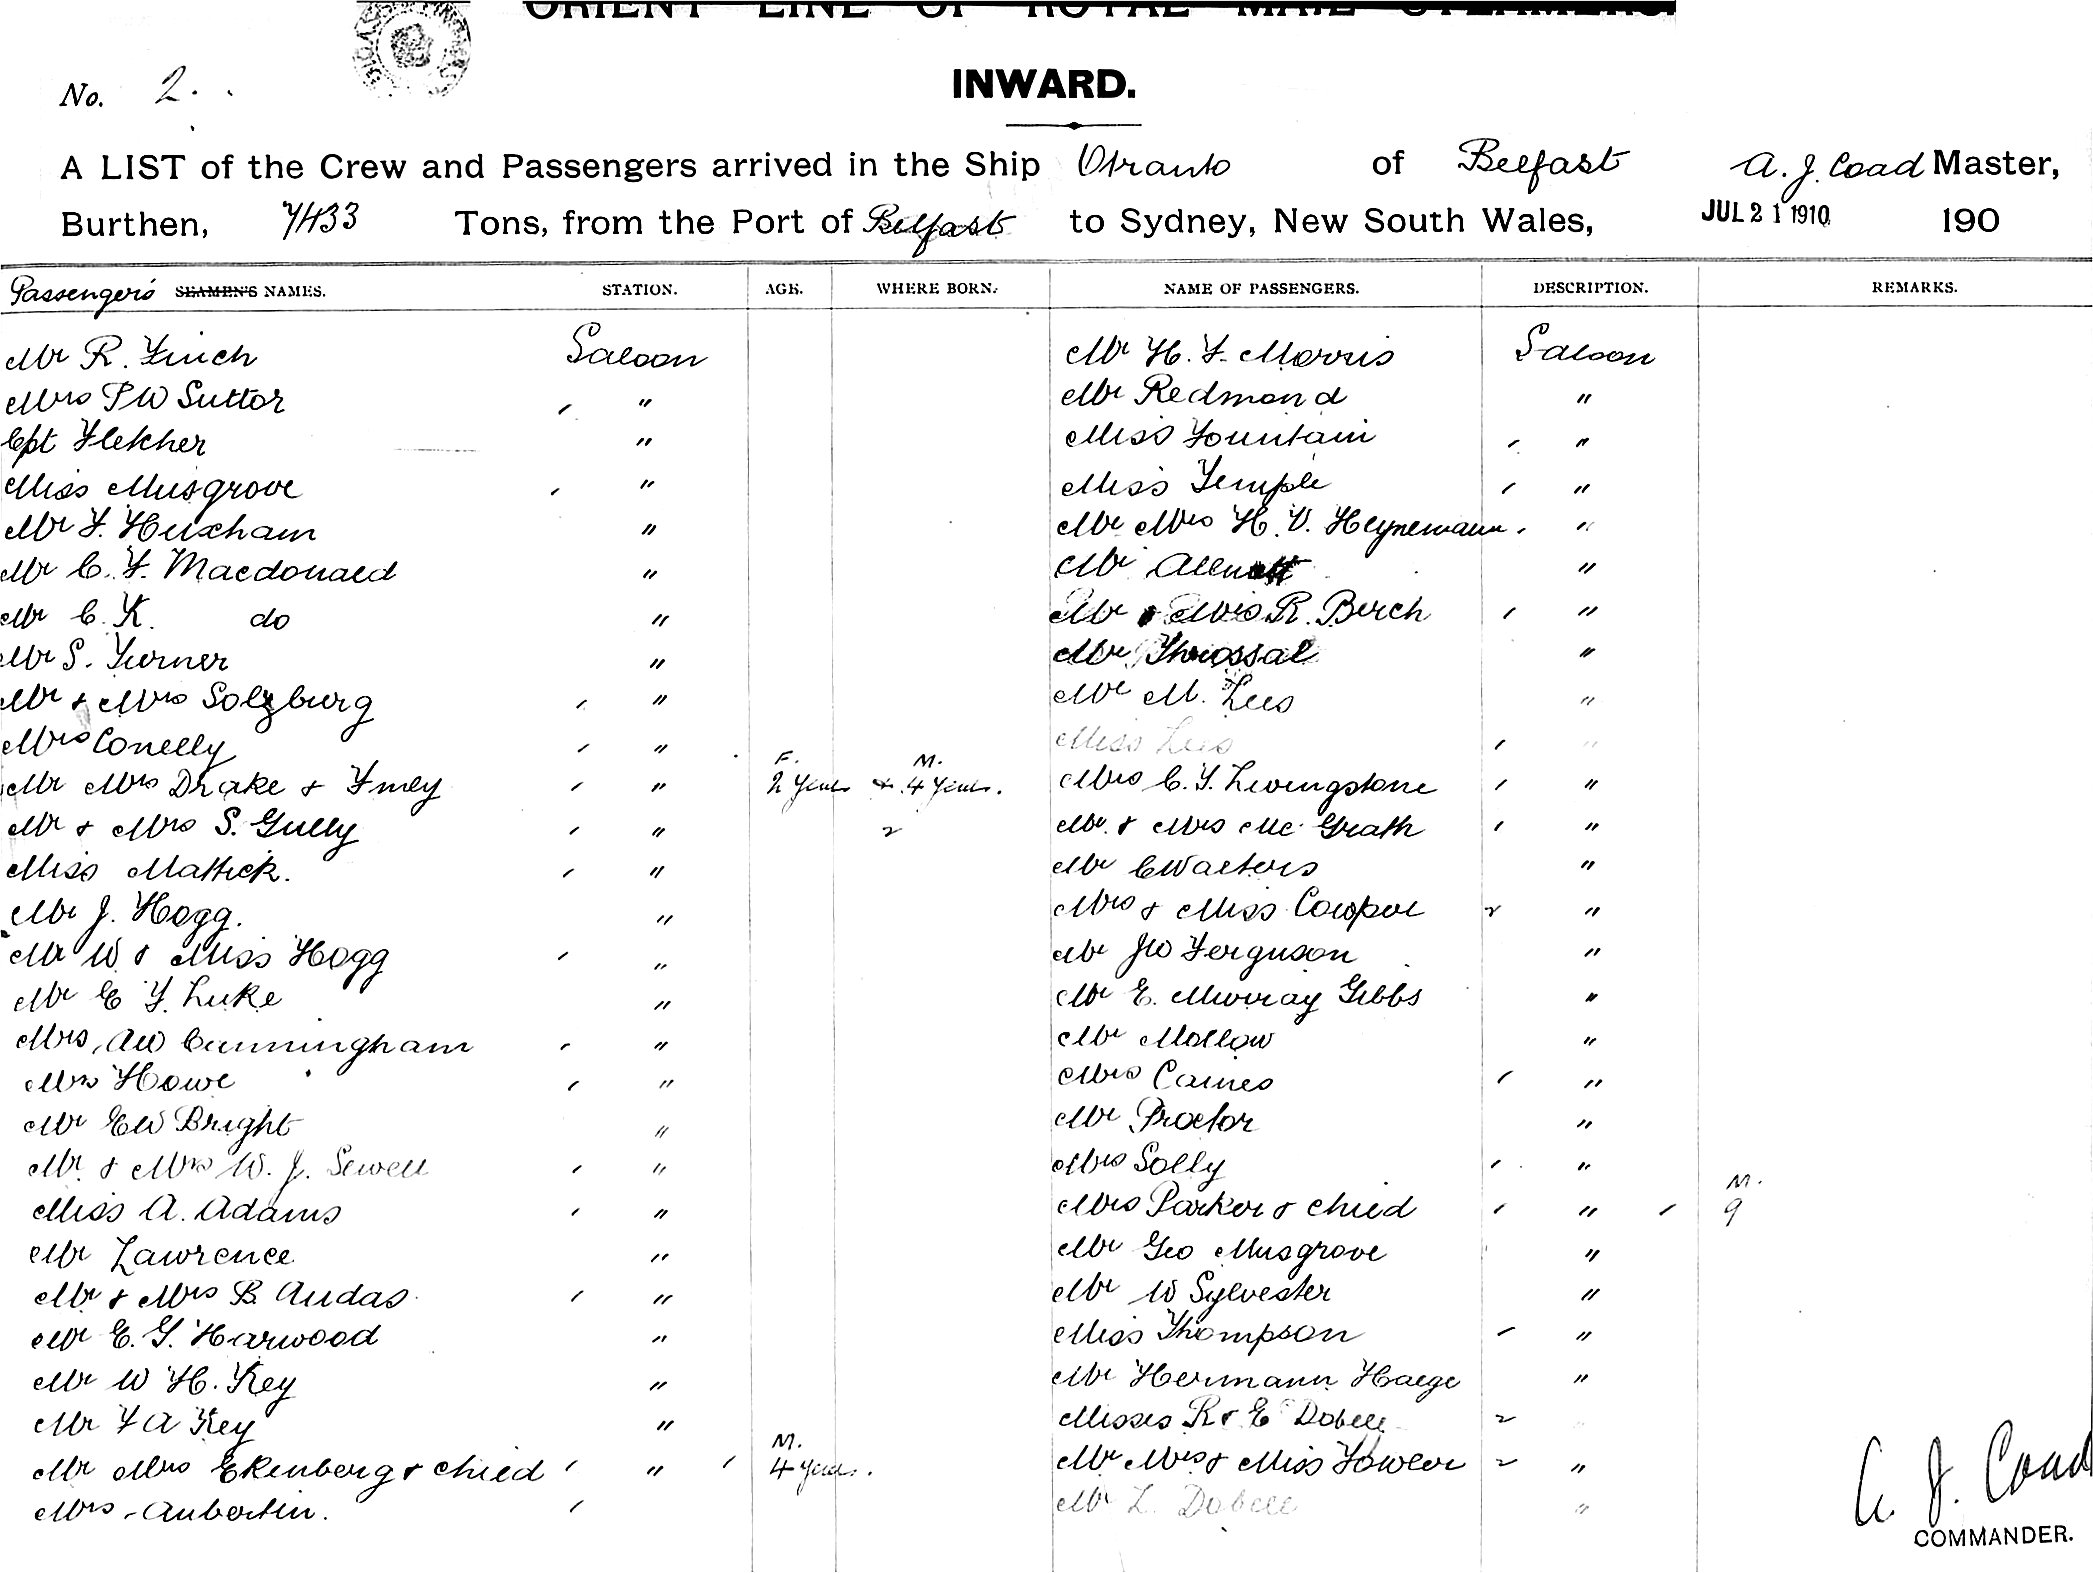 ORIENT LINE OF ROYAL MAIL STEAMERS.
No. 2.
INWARD.
A LIST of the Crew and Passengers arrived in the Ship Otranto of Belfast A. J. Coad Master,
Burthen, 7433 Tons, from the Port of Belfast to Sydney, New South Wales, JUL 21 1910 190
Passengers SEAMEN'S NAMES. STATION. AGE. WHERE BORN. NAME OF PASSENGERS. DESCRIPTION. REMARKS.
Mr R. Finch Saloon Mr H. F. Morris Saloon
Mrs P W Suttor " Mr Redmond "
Cpt Fletcher " Miss Fountain "
Miss Musgrove " Miss Temple "
Mr F. Huxham " Mr Mrs H. V. Heynemann "
Mr C. F. Macdonald " Mr Allnutt "
Mr C. K. do " Mr & Mrs R. Birch "
Mr S. Turner " Mr Throssal "
Mr & Mrs Solzburg " Mr M. Lees "
Mrs Conelly " Miss Lees "
F. M.
Mr Mrs Drake & Fmly " 2 years & 4 years. Mrs C. T. Livingstone "
Mr & Mrs S. Gully " 2 Mr. & Mrs Mc Grath "
Miss Mattick. " Mr C Walters "
Mr J. Hogg. " Mrs & Miss Cowper 2 "
Mr W & Miss Hogg " Mr J W Ferguson "
Mr E F. Luke " Mr E. Murray Gibbs "
Mrs, A W Cunningham " Mr Mollow "
Mrs Howe " Mrs Caines "
Mr E W Bright " Mr Proctor "
Mr. & Mrs W. J. Sewell " Mrs Solly "
M.
Miss A. Adams " Mrs Parker & child " 9
Mr Lawrence " Mr Geo Musgrove "
Mr & Mrs B. Audas " Mr W Sylvester "
Mr E. G. Harwood " Miss Thompson "
Mr W H. Key " Mr Hermann Haege "
Mr F A Key " Misses R & E Dobell 2
M.
Mr Mrs Ekenberg & child " 4 years. Mr Mrs & Miss Fowler 2 "
Mrs Aubertin. Mr L. Dobell "
A. J. Coad
COMMANDER.